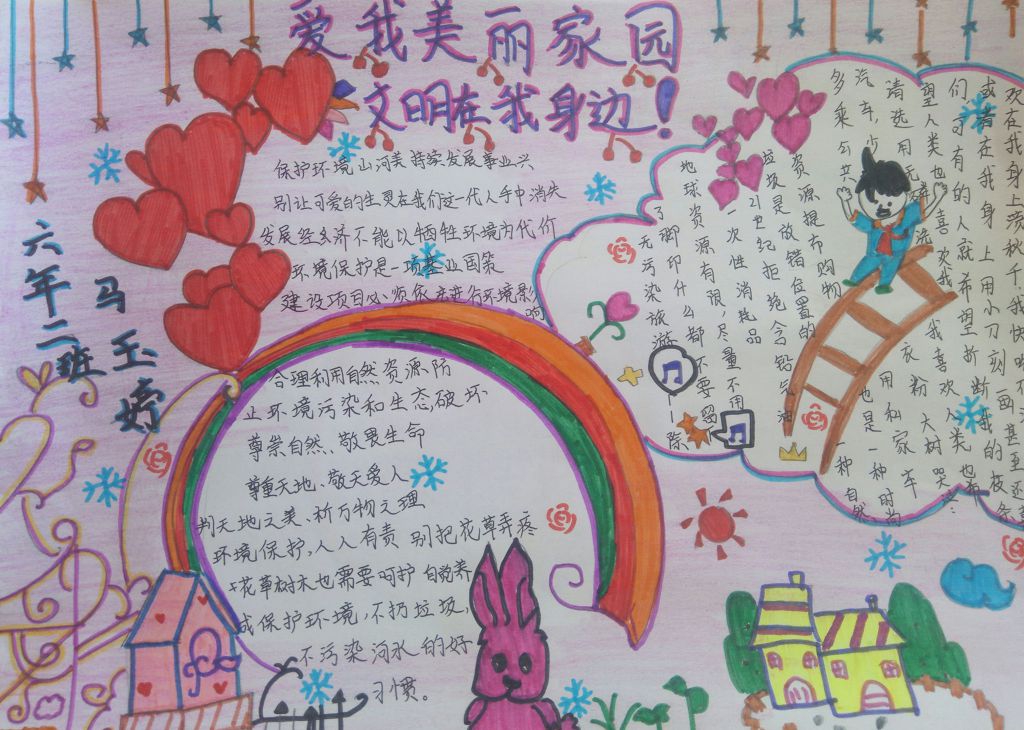 爱我美丽家园
文明在我身边!
六年二班
马玉婷
保护环境山河美持续发展事业兴
别让可爱的生灵在我们这一代人手中消失
发展经济不能以牺牲环境为代价
环境保护是一项基业国策
建设项目必须依法进行环境影响
合理利用自然资源防
止环境污染和生态,破坏
尊崇自然、敬畏生命
尊重天地、敬天爱人
判天地之美、析万物之理
环境保护,人人有责 别把花草弄疼
花草树木也需要呵护 自觉养
成保护环境,不扔垃圾,
不污染河水的好
习惯。
多乘公共
汽车,少
请选用无磷洗
衣粉
资源提布购物
垃圾是放错位置的
21世纪拒绝含铅汽油
一次性消耗品
地球资源有限,尽量不用
了脚印什么都不要留
无污染旅游
一除
用和家车
也是一种时尚
一种自然
望人类也喜欢我
我喜欢人类
大树哭泣:
们,可有的人就希望折断我的枝条
或者在我身上用小刀刻画
欢在我身上荡秋千,我快
甚至还